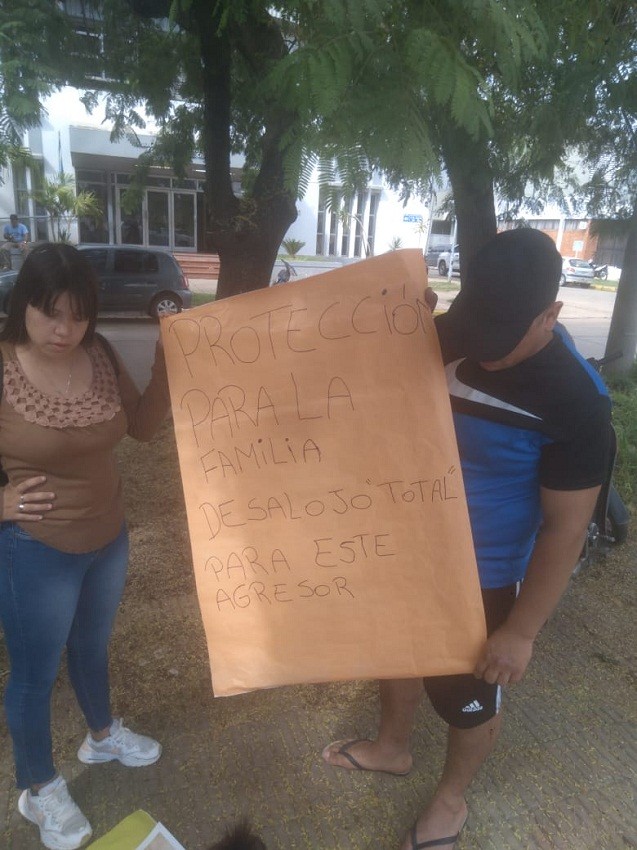 PROTECCIÓN
PARA LA
FAMILIA
DESALOJO "TOTAL"
PARA ESTE
AGRESOR
adidas